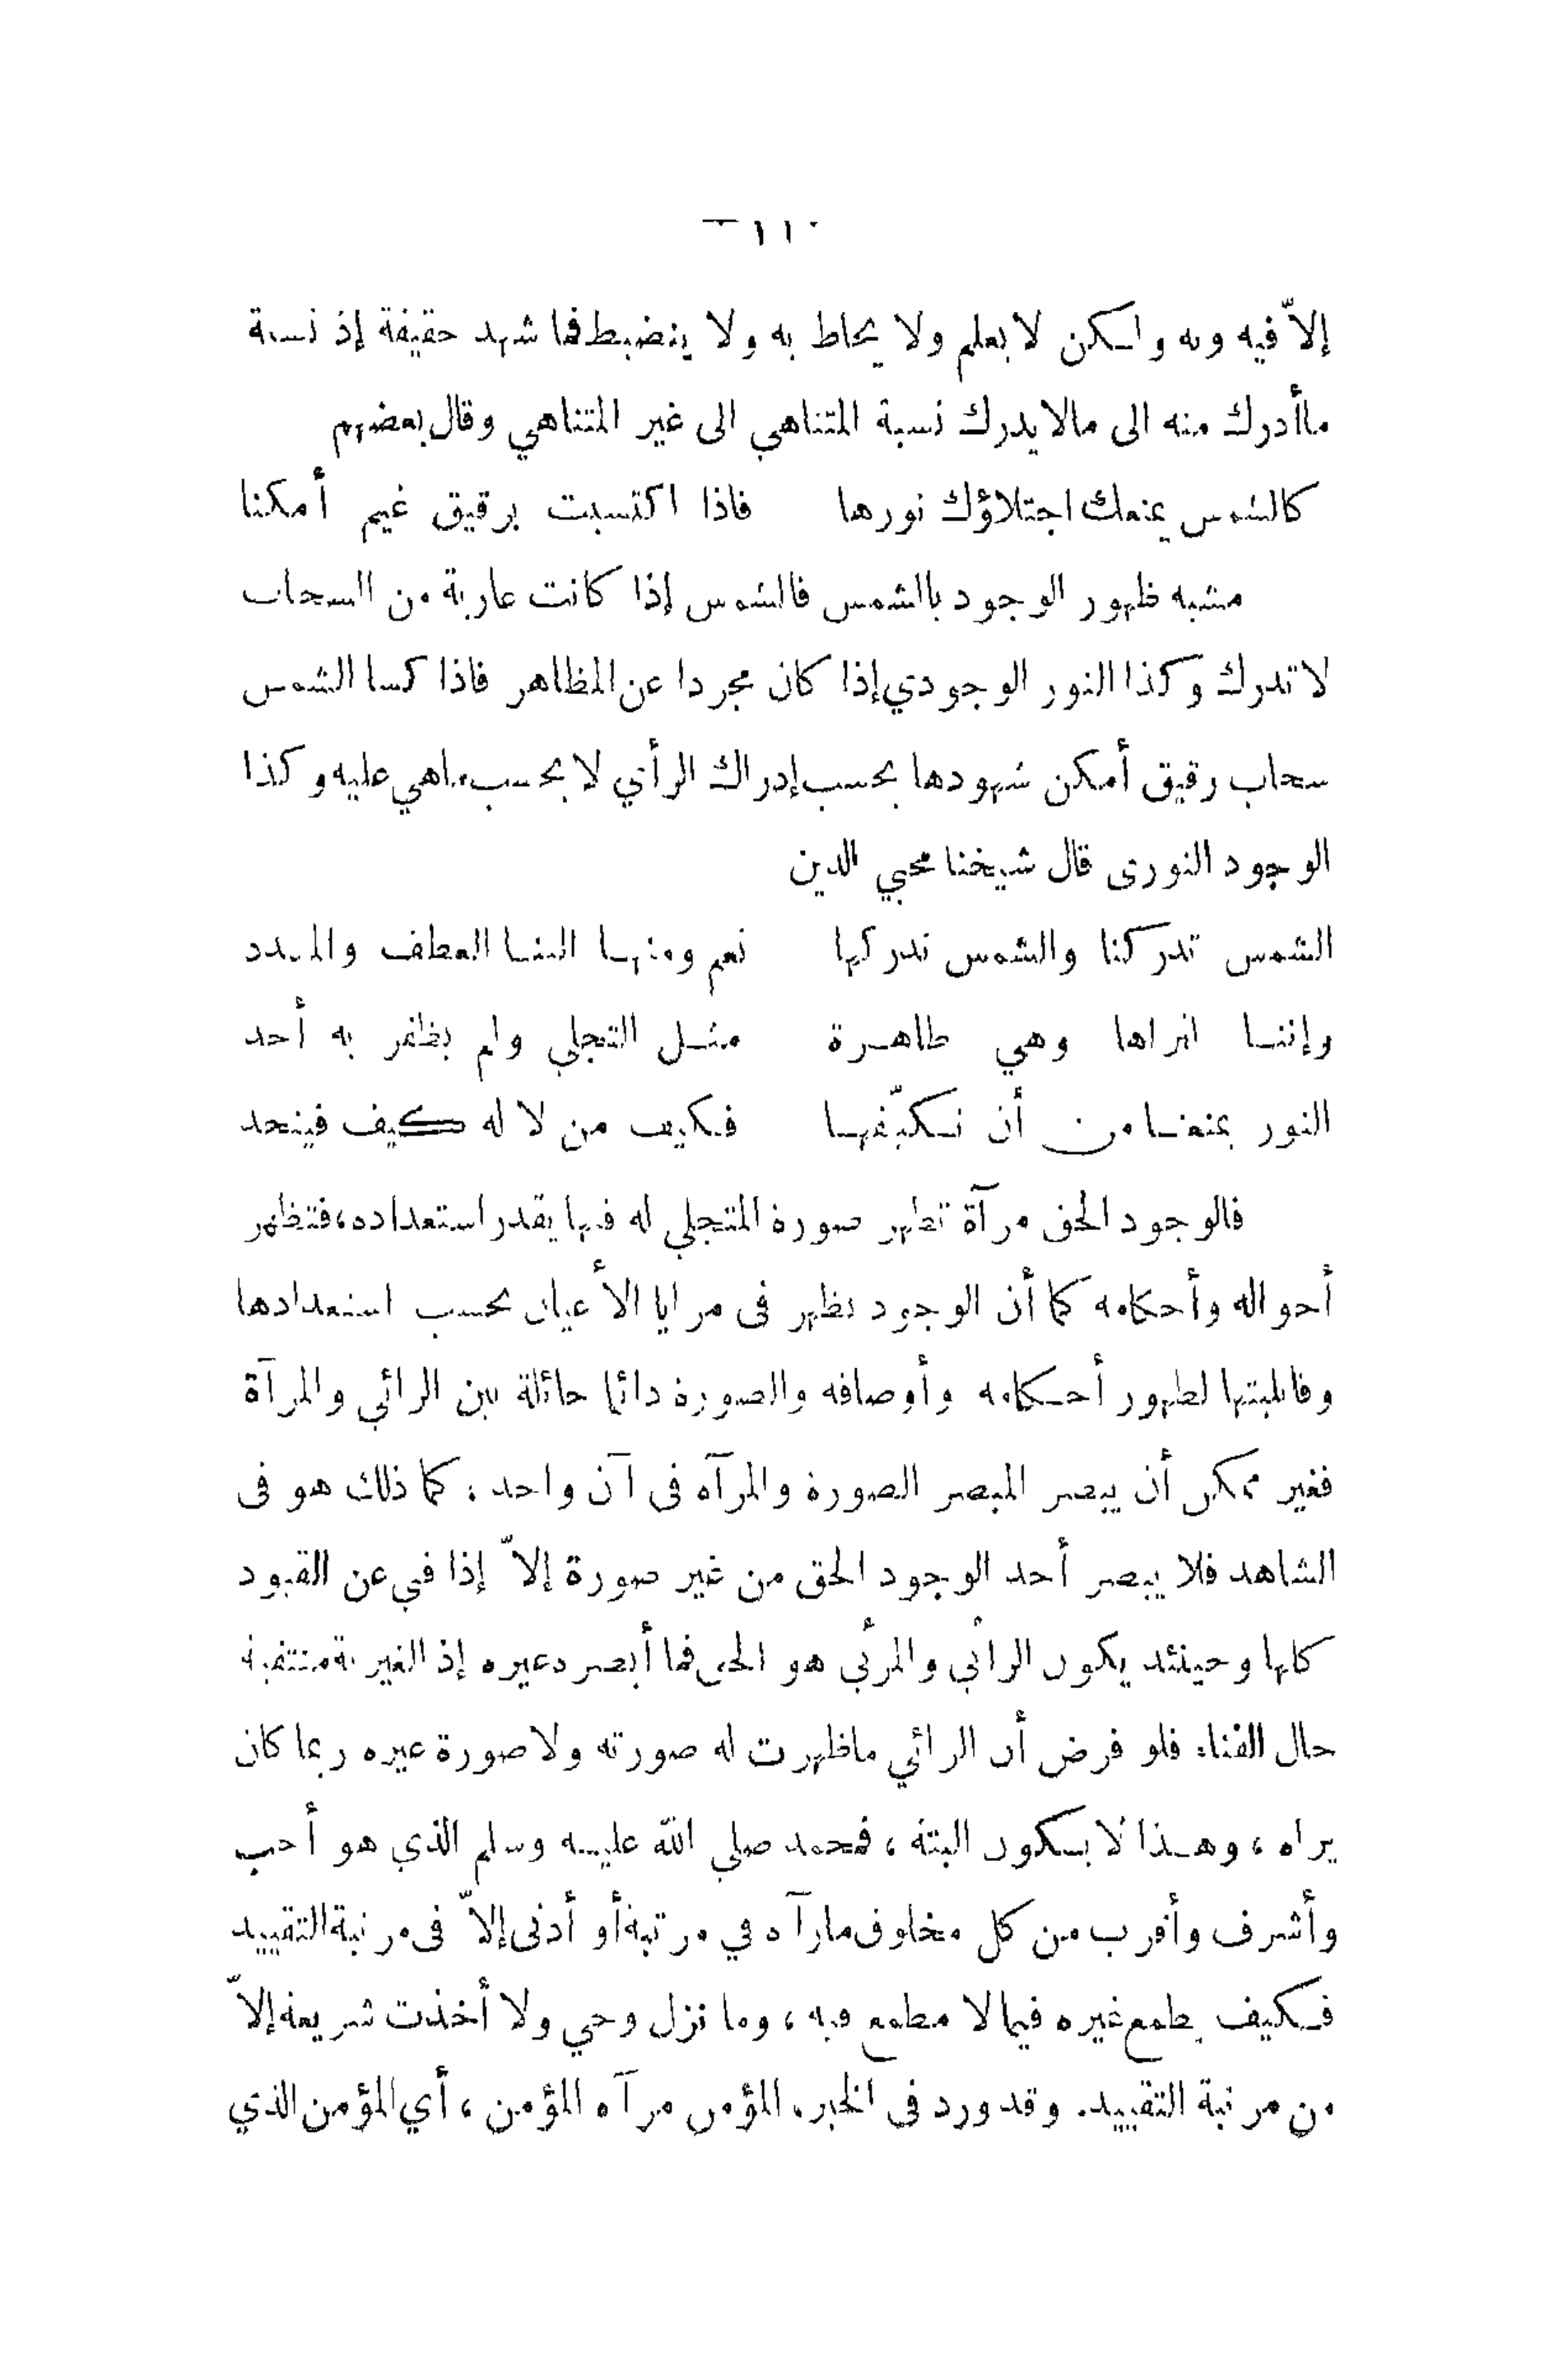 — ١١٠
إلاّ فيه وبه ولكن لا يعلم ولا يحاط به ولا ينضبط فما شهد حقيقة إذ نسبة
ماأدرك منه الى مالا يدرك نسبة المتناهي الى غير المتناهي وقال بعضهم
كالشمس يمنعك اجتلاؤك نورها فاذا اكتسبت برقيق غيم أمكنا
مشبه ظهور الوجود بالشمس فالشمس إذا كانت عارية من السحاب
لا تدرك وكذا النور الوجودي إذا كان مجردا عن المظاهر فاذا كسا الشمس
سحاب رقيق أمكن شهودها بحسب إدراك الرأي لا بحسب ماهي عليه وكذا
الوجود النورى قال شيخنا محيي الدين
الشمس تدركنا والشمس ندركها نعم ومنها الينا العطف والمدد
وإننا لنراها وهي ظاهرة مثل التجلي ولم يظفر به أحد
النور يمنعنا من أن نكيّفها فكيف من لا له كيف فينحد
فالوجود الحق مرآة تظهر صورة المتجلي له فيها بقدر استعداده، فتظهر
أحواله وأحكامه كما أن الوجود يظهر فى مرايا الأعيان بحسب استعدادها
وقابليتها لظهور أحكامه وأوصافه والصورة دائما حائلة بين الرائي والمرآة
فغير ممكن أن يبصر المبصر الصورة والمرآه فى آن واحد، كما ذلك هو فى
الشاهد فلا يبصر أحد الوجود الحق من غير صورة إلاّ إذا فني عن القيود
كلها وحينئد يكون الرائى والمرئى هو الحق فما أبصره غيره إذ الغيرية منتفية
حال الفناء فلو فرض أن الرائي ماظهرت له صورته ولا صورة غيره ربما كان
يراه، وهذا لا يكون البتة، فمحمد صلي الله عليه وسلم الذي هو أحب
وأشرف وأقرب من كل مخلوق مارآه في مرتبة أو أدنى إلاّ فى مرتبة التقييد
فكيف يطمع غيره فيما لا مطمع فيه، وما نزل وحي ولا أخذت شريعة إلاّ
من مرتبة التقييد. وقد ورد فى الخبر، المؤمن مرآه المؤمن، أي المؤمن الذي